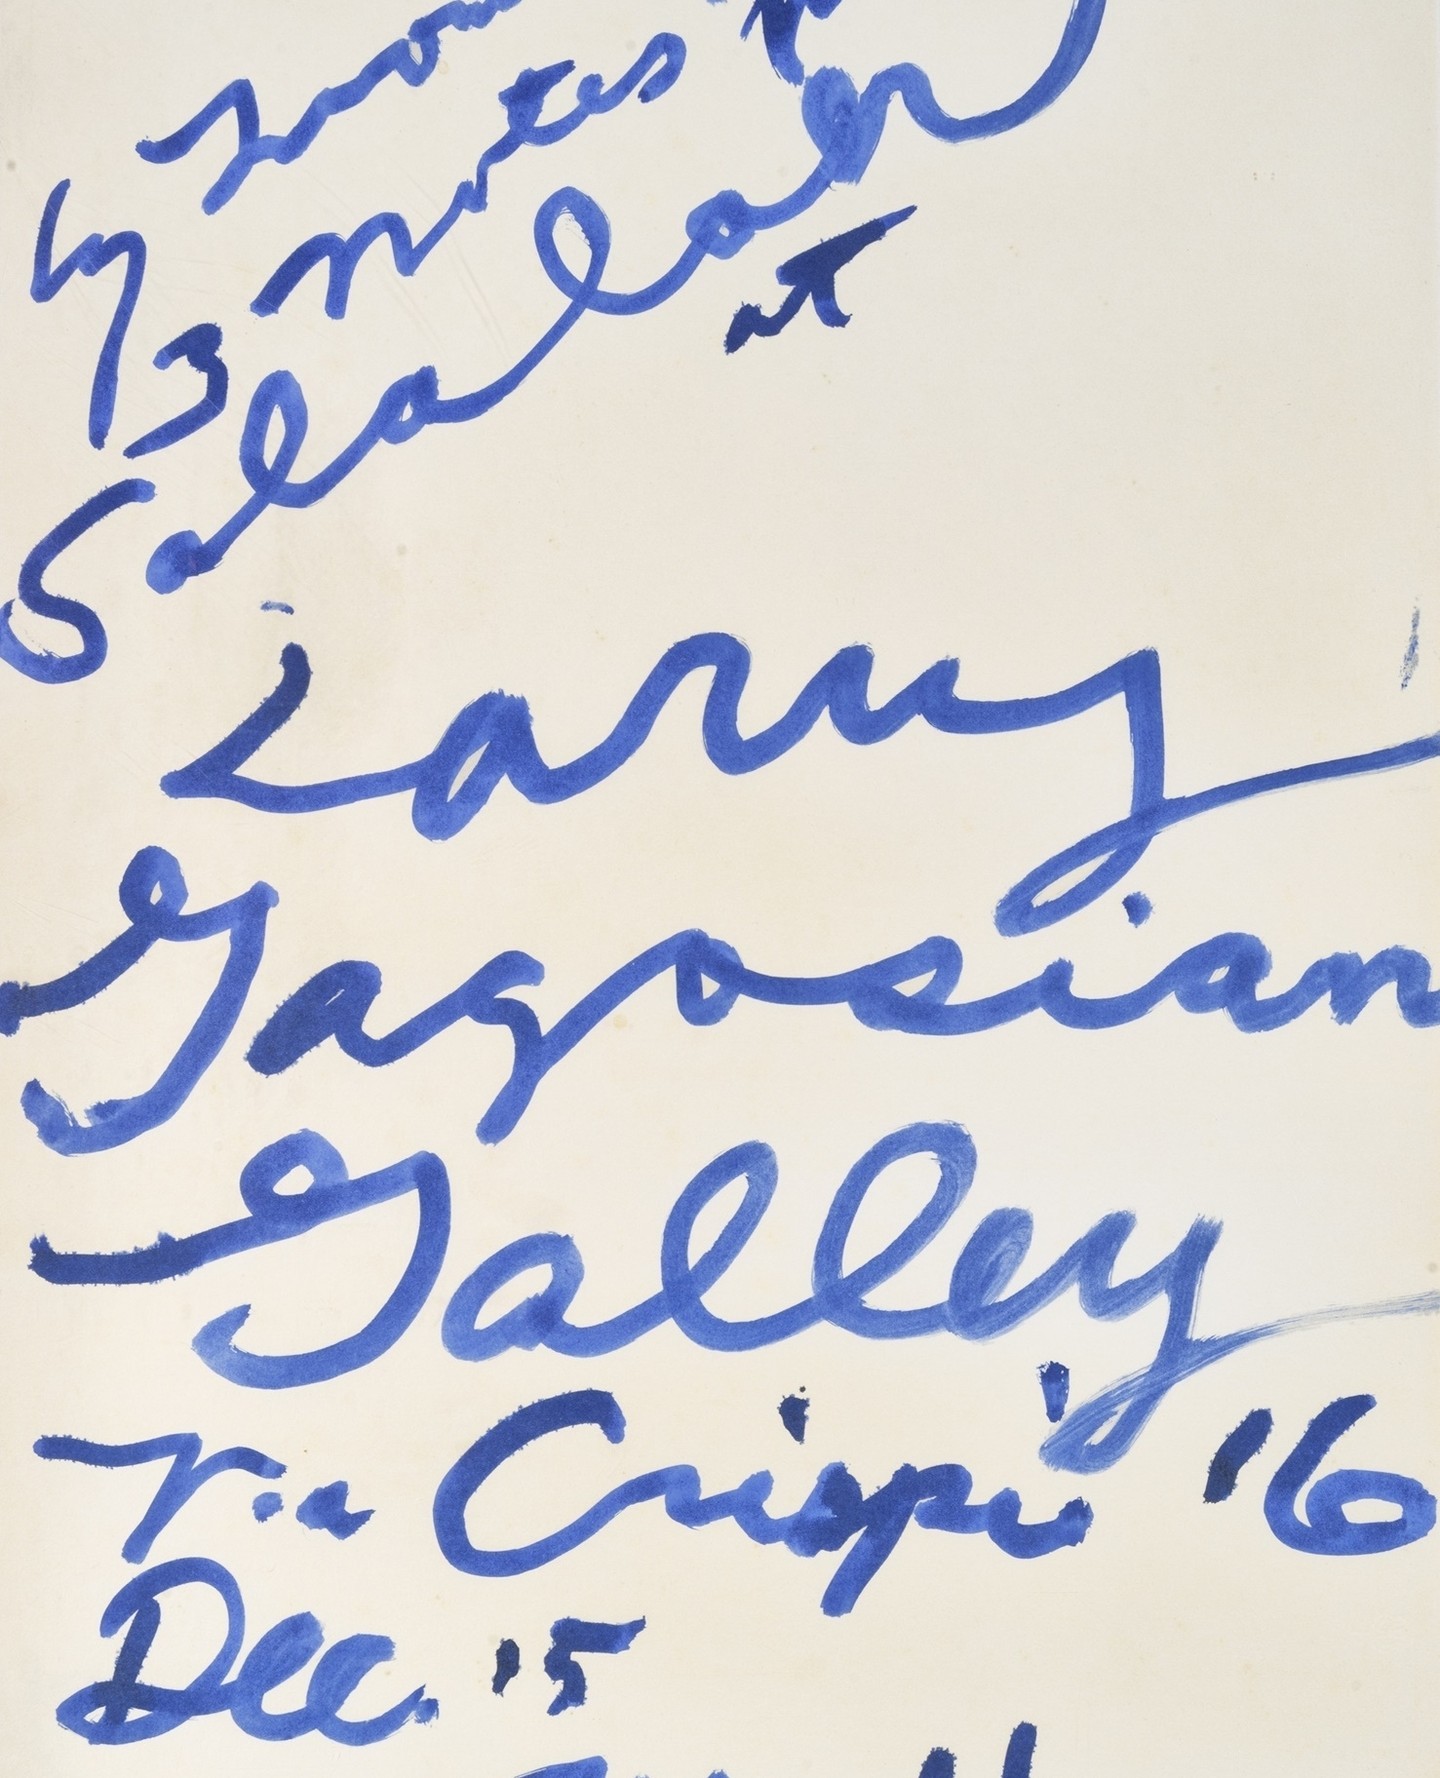 Cy Twom
3 notes
Salalah
at
Larry
Gagosian
Galley
Via Crispi '16
Dec. '15